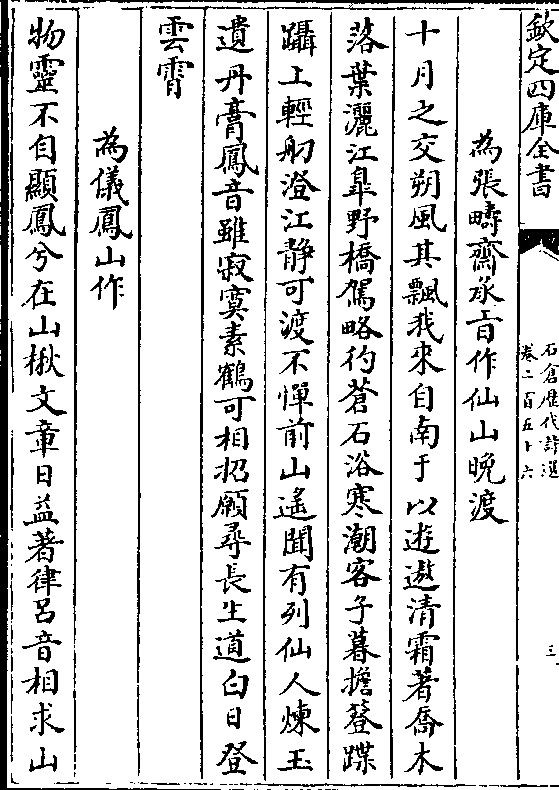 欽定四庫全書
石倉歷代詩選
卷二百五十六
三
為張疇齋承旨作仙山晚渡
十月之交朔風其飄我來自南于以逰遨清霜著喬木
落葉灑江臯野橋駕略彴蒼石浴寒潮客子暮擔簦蹀
躡上輕舠澄江静可渡不憚前山遙聞有列仙人煉玉
遺丹膏鳳音雖寂寞素鶴可相招願尋長生道白日登
雲霄
為儀鳳山作
物靈不自顯鳳兮在山楸文章日益著律呂音相求山